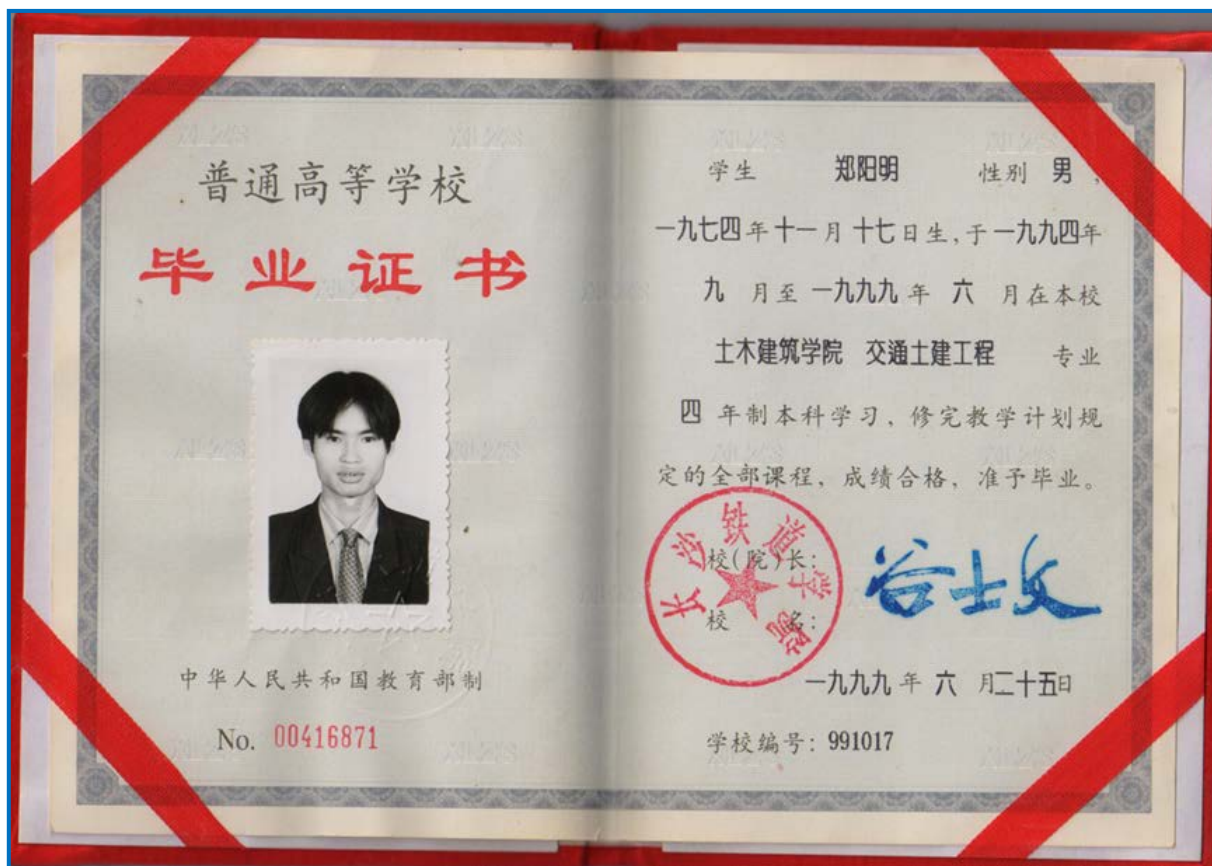 普通高等学校
毕业证书
中华人民共和国教育部制
No. 00416871
学生 郑阳明 性别 男,
一九七四年十一月十七日生,于一九九四年
九月至一九九九年六月在本校
土木建筑学院 交通土建工程 专业
四年制本科学习,修完教学计划规
定的全部课程,成绩合格,准予毕业。
长沙铁道学院
校(院)长: 谷士文
校名:
一九九九年六月二十五日
学校编号: 991017